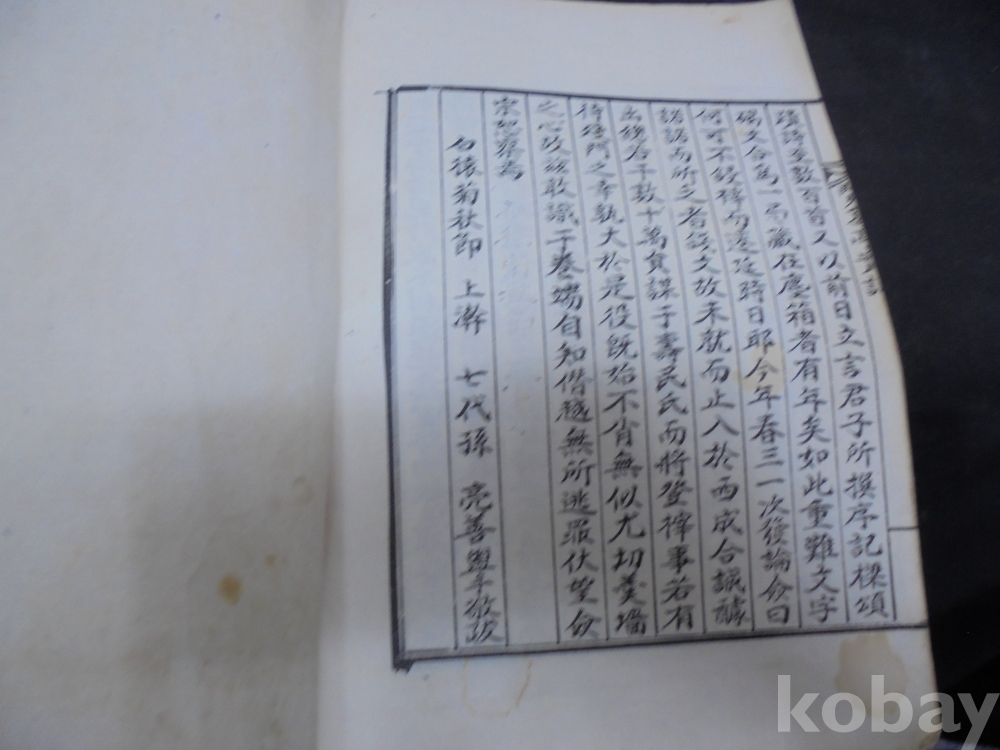 以前日立言君子所撰序記樑頌
碣文合為一而藏在塵箱者有年矣如此重難文字
何可不鋟梓而遷延時日耶今年春三一次發論僉曰
諾諾而所乏者錢文故未就而止入於西成合議醵
出錢若干數十萬負課于壽民氏而將登梓事若有
待孫門之幸孰大於是役既始不肖無似尤切羹墻
之心故玆敢識于卷端自知僭越無所逃罪伏望僉
宗恕察焉
白猿菊秋節 上澣 七代孫 亮善盥手敬跋
kobay